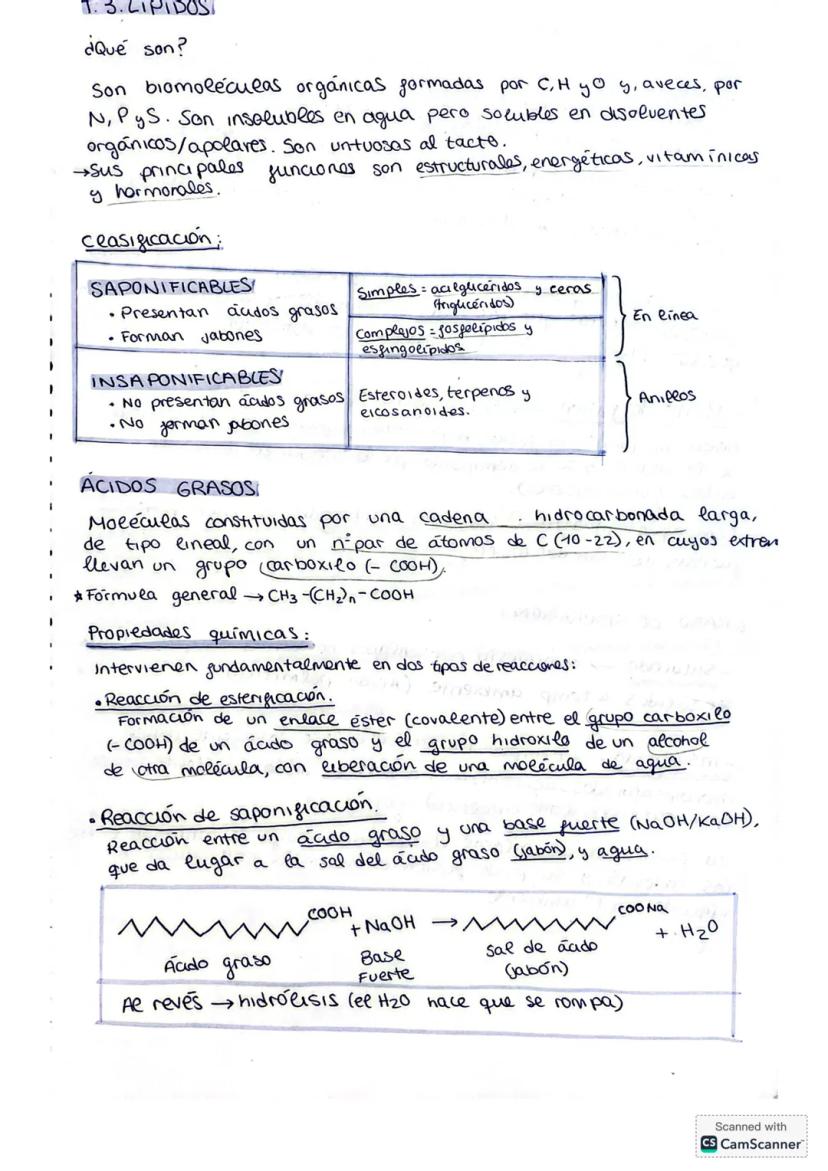 T.3. LÍPIDOS
¿Qué son?
Son biomoléculas orgánicas formadas por C, H y O y, aveces, por
N, P y S. Son insolubles en agua pero solubles en disolventes
orgánicos/apolares. Son untuosas al tacto.
→ Sus principales funciones son estructurales, energéticas, vitamínicas
y hormonales.
Clasificación:
SAPONIFICABLES
• Presentan ácidos grasos
• Forman jabones
Simples = acilglicéridos y ceras
(triglicéridos)
Complejos = fosfolípidos y
esfingolípidos
En línea
INSAPONIFICABLES
• No presentan ácidos grasos
• No forman jabones
Esteroides, terpenos y
eicosanoides.
Anillos
ÁCIDOS GRASOS
Moléculas constituidas por una cadena hidrocarbonada larga,
de tipo lineal, con un nº par de átomos de C (10-22), en cuyos extrem
llevan un grupo carboxilo (-COOH).
* Fórmula general → CH3-(CH2)n-COOH
Propiedades químicas:
Intervienen fundamentalmente en dos tipos de reacciones:
• Reacción de esterificación.
Formación de un enlace éster (covalente) entre el grupo carboxilo
(-COOH) de un ácido graso y el grupo hidroxilo de un alcohol
de otra molécula, con liberación de una molécula de agua.
• Reacción de saponificación.
Reacción entre un ácido graso y una base fuerte (NaOH/KaOH),
que da lugar a la sal del ácido graso (jabón), y agua.
COOH + NaOH → COONa + H2O
Ácido graso
Base
Fuerte
Sal de ácido
(jabón)
Al revés → hidrólisis (el H2O hace que se rompa)
Scanned with
CS CamScanner